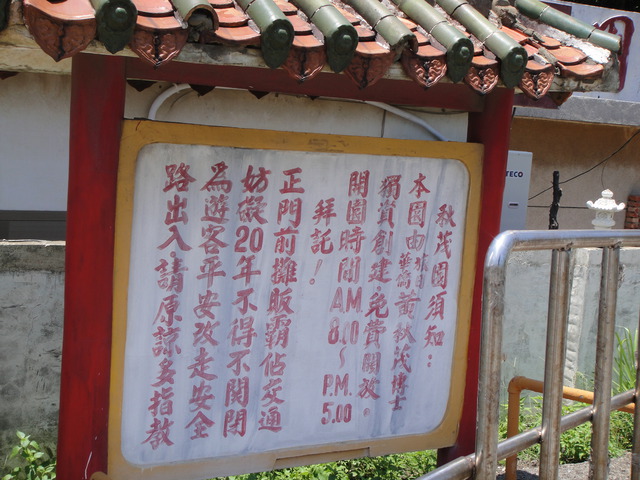 秋茂園須知：
本園由旅日華僑黃秋茂博士
獨資創建免費開放。
開園時間AM.8.00～P.M.5.00
拜託！
正門前攤販霸佔交通
妨礙20年不得不関閉
為遊客平安改走安全
路出入。請原諒多指教
TECO